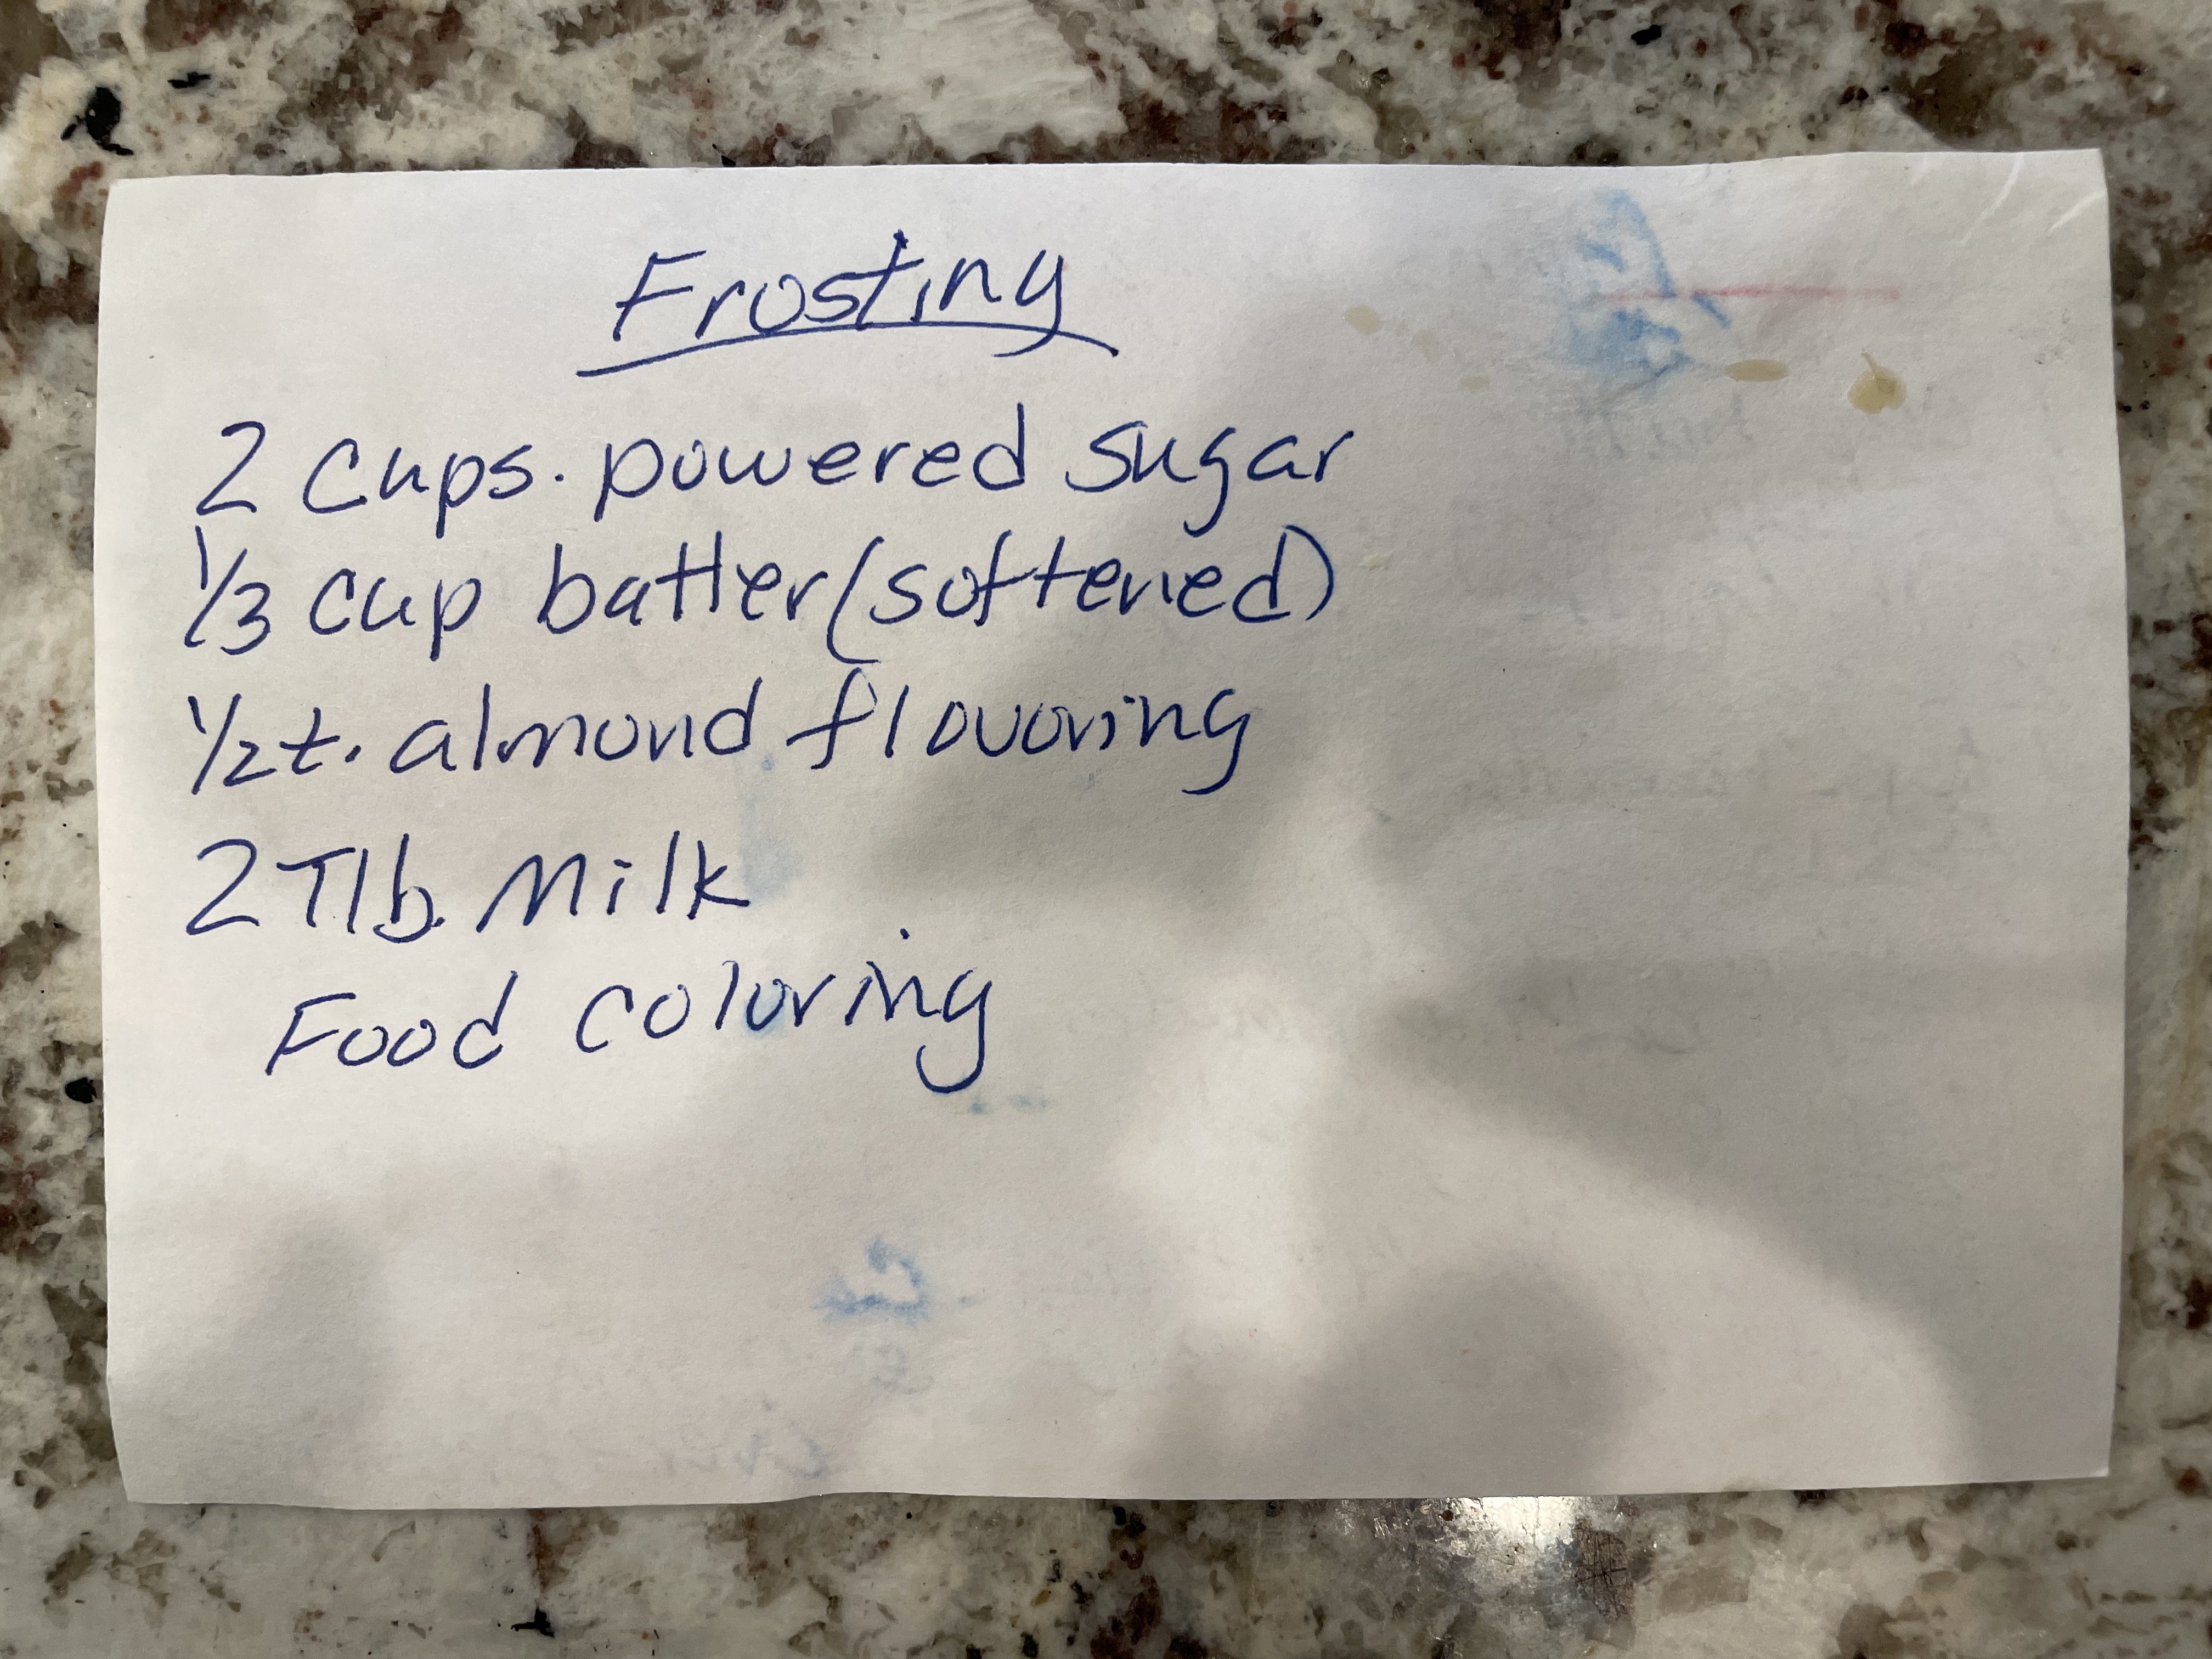 Frosting
2 cups. powered sugar
1/3 cup butter (softened)
1/2 t. almond flavoring
2 Tlb. Milk
Food coloring